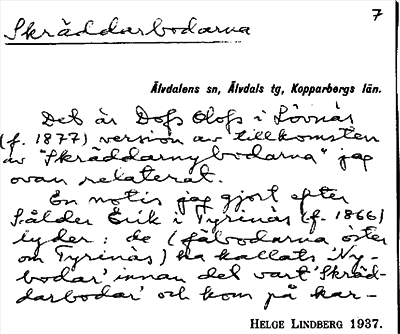 7
Skräddarbodarna
Älvdalens sn, Älvdals tg, Kopparbergs län.
Det är Dofs Olofs i Lövnäs
(f. 1877) version av tillkomsten
av "Skräddarnybodarna" jag
ovan relaterat.
En notis jag gjort efter
Erik i Tyrinäs (f. 1866)
lyder: de (fäbodarna öster
om Tyrinäs) ha kallats 'Ny-
bodar' innan det vart 'Skräd-
darbodar' och kom på kar-
HELGE LINDBERG 1937.